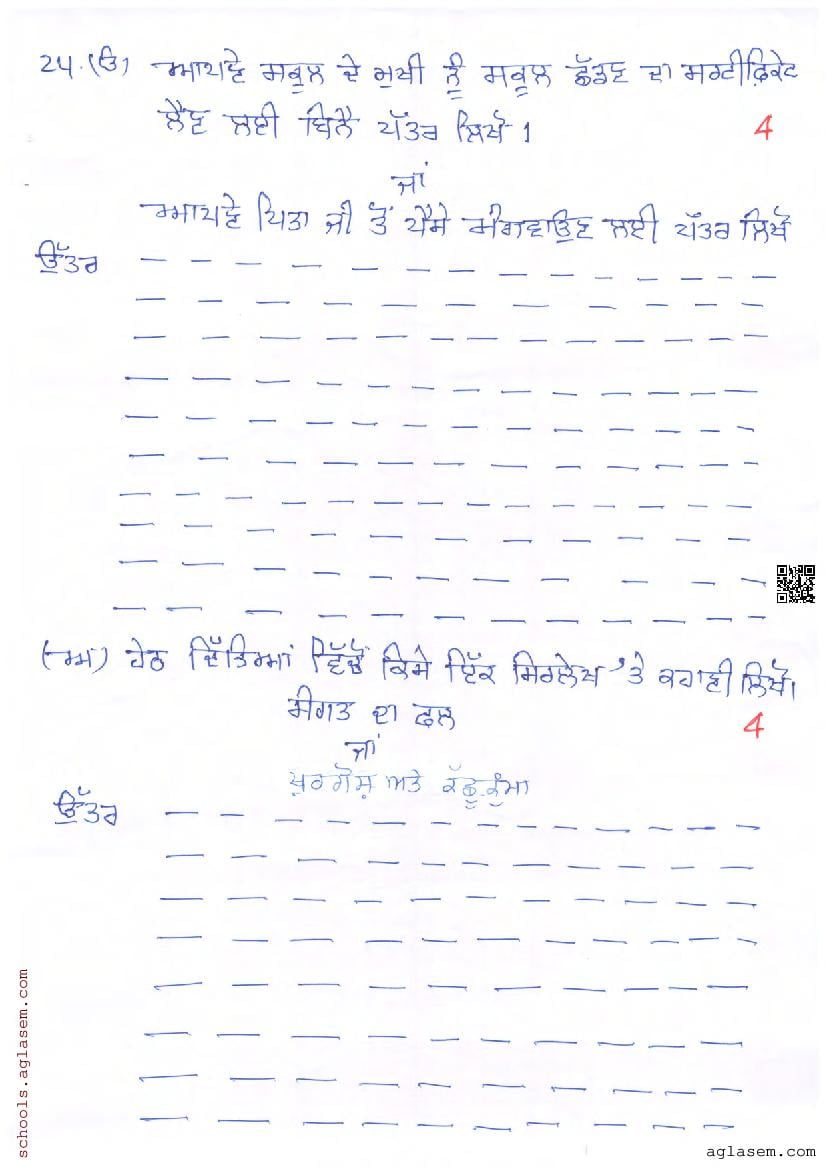 24.(ੳ) ਆਪਣੇ ਸਕੂਲ ਦੇ ਮੁਖੀ ਨੂੰ ਸਕੂਲ ਛੱਡਣ ਦਾ ਸਰਟੀਫ਼ਿਕੇਟ
ਲੈਣ ਲਈ ਬਿਨੈ ਪੱਤਰ ਲਿਖੋ। 4
ਜਾਂ
ਆਪਣੇ ਪਿਤਾ ਜੀ ਤੋਂ ਪੈਸੇ ਮੰਗਵਾਉਣ ਲਈ ਪੱਤਰ ਲਿਖੋ
ਉੱਤਰ
(ਅ) ਹੇਠ ਦਿੱਤਿਆਂ ਵਿੱਚੋਂ ਕਿਸੇ ਇੱਕ ਸਿਰਲੇਖ 'ਤੇ ਕਹਾਣੀ ਲਿਖੋ।
ਸੰਗਤ ਦਾ ਫਲ 4
ਜਾਂ
ਖ਼ਰਗੋਸ਼ ਅਤੇ ਕੱਛੂਕੁੰਮਾ
ਉੱਤਰ
schools.aglasem.com
aglasem.com